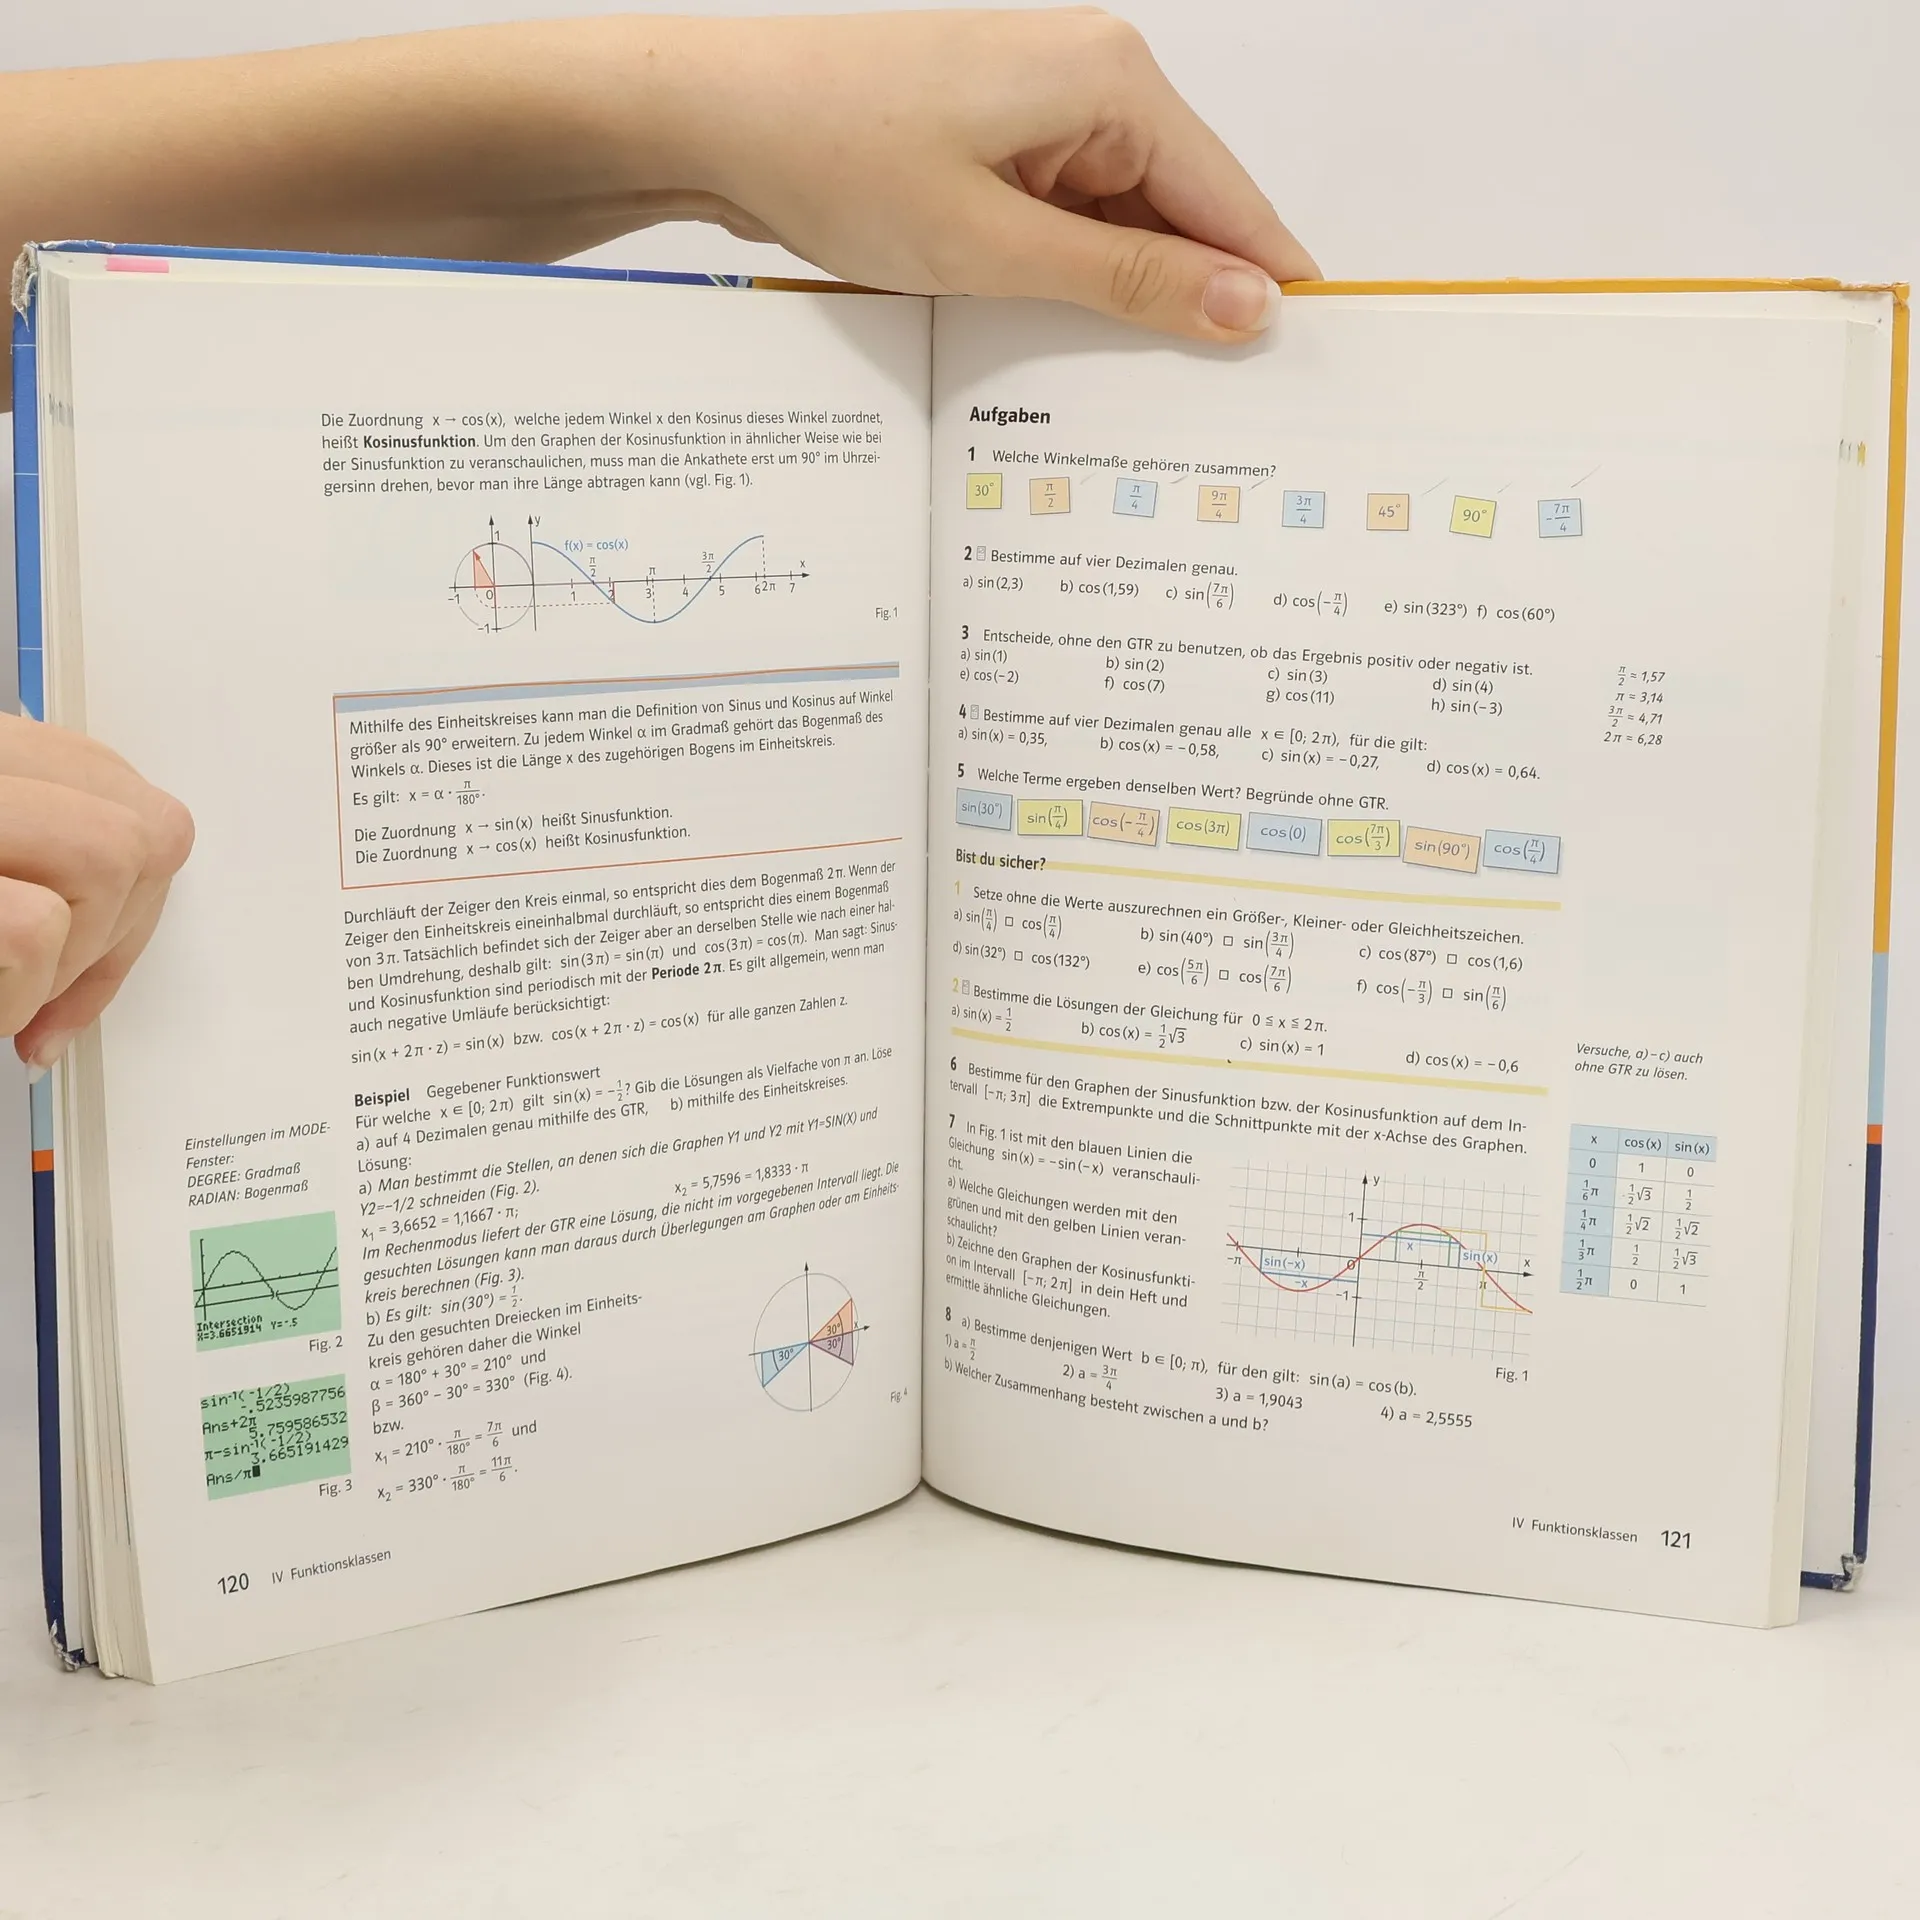 Die Zuordnung x → cos(x), welche jedem Winkel x den Kosinus dieses Winkel zuordnet,
heißt Kosinusfunktion. Um den Graphen der Kosinusfunktion in ähnlicher Weise wie bei
der Sinusfunktion zu veranschaulichen, muss man die Ankathete erst um 90° im Uhrzei-
gersinn drehen, bevor man ihre Länge abtragen kann (vgl. Fig. 1).
1 y f(x) = cos(x) π/2 π 3π/2 x
-1 0 1 2 3 4 5 6 2π 7
-1
Fig. 1
Mithilfe des Einheitskreises kann man die Definition von Sinus und Kosinus auf Winkel
größer als 90° erweitern. Zu jedem Winkel α im Gradmaß gehört das Bogenmaß des
Winkels α. Dieses ist die Länge x des zugehörigen Bogens im Einheitskreis.
Es gilt: x = α · π/180°.
Die Zuordnung x → sin(x) heißt Sinusfunktion.
Die Zuordnung x → cos(x) heißt Kosinusfunktion.
Durchläuft der Zeiger den Kreis einmal, so entspricht dies dem Bogenmaß 2π. Wenn der
Zeiger den Einheitskreis eineinhalbmal durchläuft, so entspricht dies einem Bogenmaß
von 3π. Tatsächlich befindet sich der Zeiger aber an derselben Stelle wie nach einer hal-
ben Umdrehung, deshalb gilt: sin(3π) = sin(π) und cos(3π) = cos(π). Man sagt: Sinus-
und Kosinusfunktion sind periodisch mit der Periode 2π. Es gilt allgemein, wenn man
auch negative Umläufe berücksichtigt:
sin(x + 2π · z) = sin(x) bzw. cos(x + 2π · z) = cos(x) für alle ganzen Zahlen z.
Beispiel Gegebener Funktionswert
Für welche x ∈ [0; 2π) gilt sin(x) = -1/2? Gib die Lösungen als Vielfache von π an. Löse
a) auf 4 Dezimalen genau mithilfe des GTR, b) mithilfe des Einheitskreises.
Lösung:
a) Man bestimmt die Stellen, an denen sich die Graphen Y1 und Y2 mit Y1=SIN(X) und
Y2=-1/2 schneiden (Fig. 2).
x₁ = 3,6652 = 1,1667 · π; x₂ = 5,7596 = 1,8333 · π
Im Rechenmodus liefert der GTR eine Lösung, die nicht im vorgegebenen Intervall liegt. Die
gesuchten Lösungen kann man daraus durch Überlegungen am Graphen oder am Einheits-
kreis berechnen (Fig. 3).
b) Es gilt: sin(30°) = 1/2.
Zu den gesuchten Dreiecken im Einheits-
kreis gehören daher die Winkel
α = 180° + 30° = 210° und
β = 360° - 30° = 330° (Fig. 4).
bzw.
x₁ = 210° · π/180° = 7π/6 und
x₂ = 330° · π/180° = 11π/6.
30° 30° 30° x
Fig. 4
Einstellungen im MODE-
Fenster:
DEGREE: Gradmaß
RADIAN: Bogenmaß
Intersection
X=3.6651914 Y=-.5
Fig. 2
sin⁻¹(-1/2)
-.5235987756
Ans+2π
5.759586532
π-sin⁻¹(-1/2)
3.665191429
Ans/π
Fig. 3
120 IV Funktionsklassen
Aufgaben
1 Welche Winkelmaße gehören zusammen?
30° π/2 π/4 9π/4 3π/4 45° 90° -7π/4
2 Bestimme auf vier Dezimalen genau.
a) sin(2,3) b) cos(1,59) c) sin(7π/6) d) cos(-π/4) e) sin(323°) f) cos(60°)
3 Entscheide, ohne den GTR zu benutzen, ob das Ergebnis positiv oder negativ ist.
a) sin(1) b) sin(2) c) sin(3) d) sin(4)
e) cos(-2) f) cos(7) g) cos(11) h) sin(-3)
π/2 = 1,57
π = 3,14
3π/2 = 4,71
2π = 6,28
4 Bestimme auf vier Dezimalen genau alle x ∈ [0; 2π), für die gilt:
a) sin(x) = 0,35, b) cos(x) = -0,58, c) sin(x) = -0,27, d) cos(x) = 0,64.
5 Welche Terme ergeben denselben Wert? Begründe ohne GTR.
sin(30°) sin(π/4) cos(-π/4) cos(3π) cos(0) cos(7π/3) sin(90°) cos(π/4)
Bist du sicher?
1 Setze ohne die Werte auszurechnen ein Größer-, Kleiner- oder Gleichheitszeichen.
a) sin(π/4) □ cos(π/4) b) sin(40°) □ sin(3π/4) c) cos(87°) □ cos(1,6)
d) sin(32°) □ cos(132°) e) cos(5π/6) □ cos(7π/6) f) cos(-π/3) □ sin(π/6)
2 Bestimme die Lösungen der Gleichung für 0 ≤ x ≤ 2π.
a) sin(x) = 1/2 b) cos(x) = 1/2√3 c) sin(x) = 1 d) cos(x) = -0,6
Versuche, a)-c) auch
ohne GTR zu lösen.
6 Bestimme für den Graphen der Sinusfunktion bzw. der Kosinusfunktion auf dem In-
tervall [-π; 3π] die Extrempunkte und die Schnittpunkte mit der x-Achse des Graphen.
7 In Fig. 1 ist mit den blauen Linien die
Gleichung sin(x) = -sin(-x) veranschauli-
cht.
a) Welche Gleichungen werden mit den
grünen und mit den gelben Linien veran-
schaulicht?
b) Zeichne den Graphen der Kosinusfunkti-
on im Intervall [-π; 2π] in dein Heft und
ermittle ähnliche Gleichungen.
y
1
x sin(x) x
-π sin(-x) 0 π/2 π
-x
-1
Fig. 1
x cos(x) sin(x)
0 1 0
1/6π 1/2√3 1/2
1/4π 1/2√2 1/2√2
1/3π 1/2 1/2√3
1/2π 0 1
8 a) Bestimme denjenigen Wert b ∈ [0; π), für den gilt: sin(a) = cos(b).
1) a = π/2 2) a = 3π/4 3) a = 1,9043 4) a = 2,5555
b) Welcher Zusammenhang besteht zwischen a und b?
IV Funktionsklassen 121